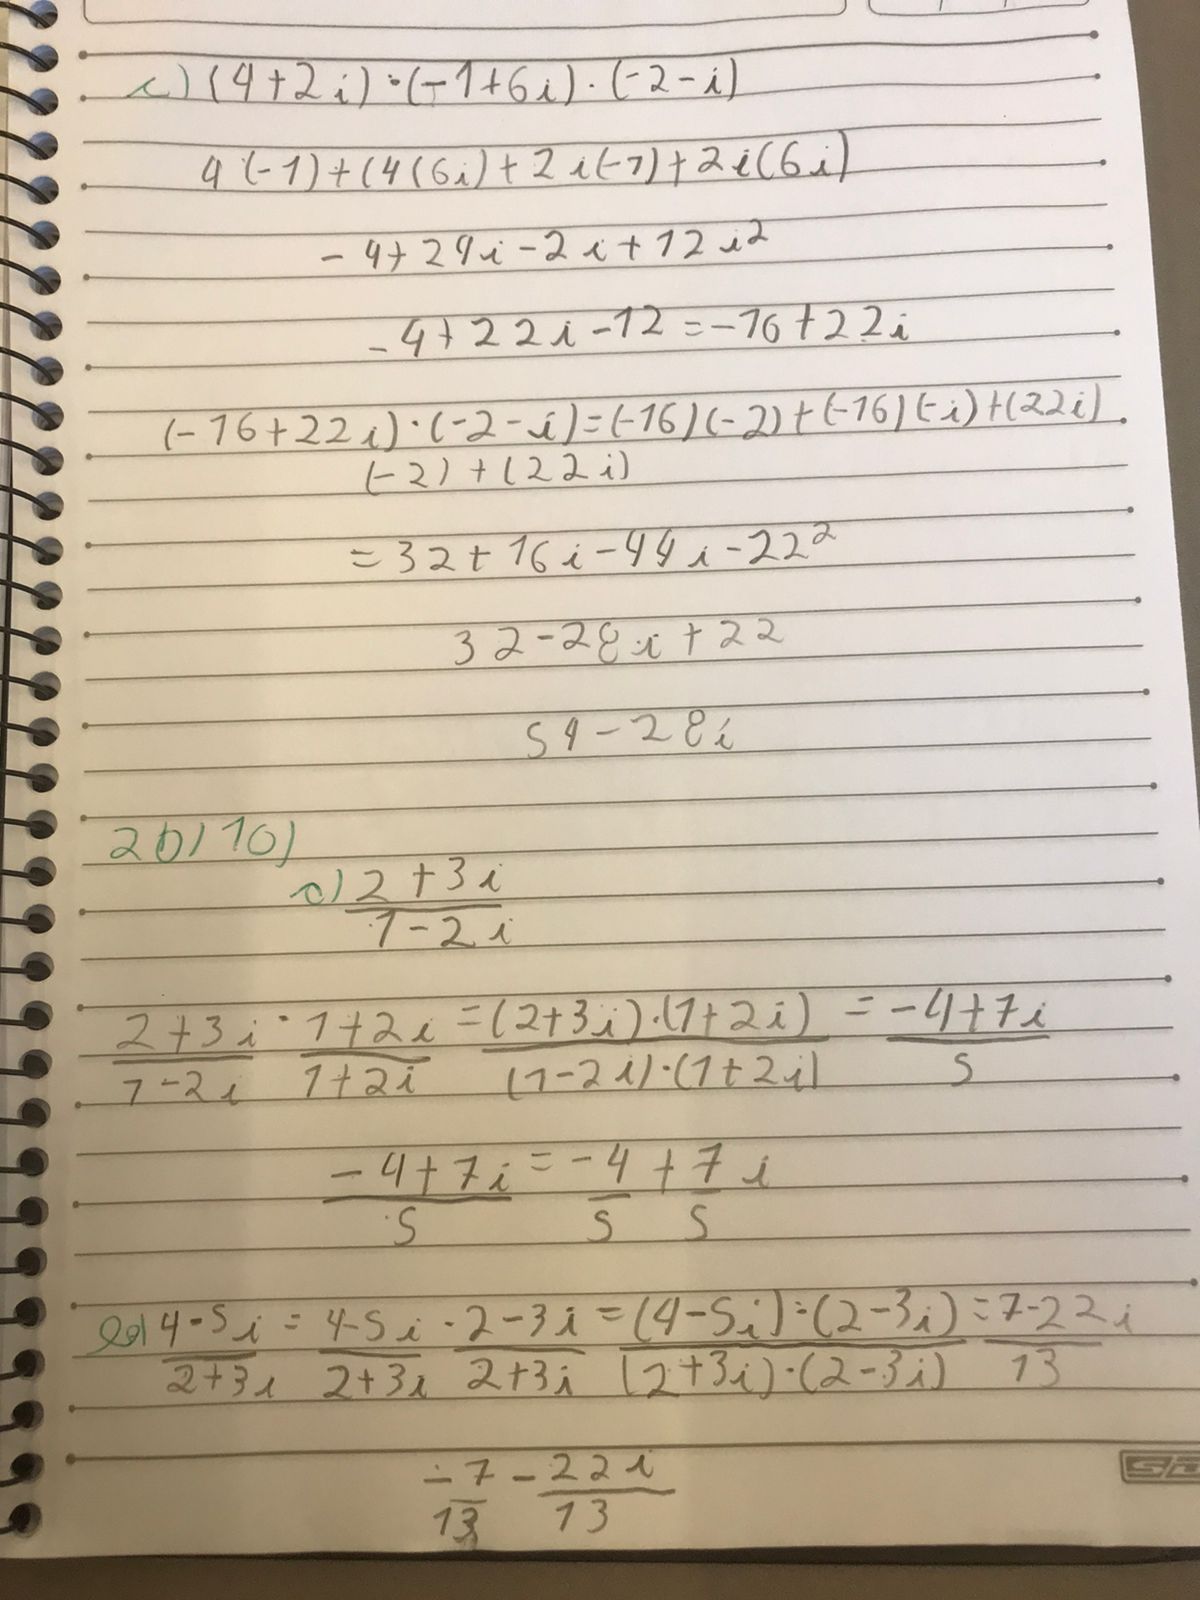 c) (4+2i)·(-1+6i)·(-2-i)
4(-1)+(4(6i)+2i(-1)+2i(6i)
-4+24i-2i+12i²
-4+22i-12=-16+22i
(-16+22i)·(-2-i)=(-16)(-2)+(-16)(-i)+(22i)
(-2)+(22i)
=32+16i-44i-22²
32-28i+22
54-28i
2b) 10)
a) (2+3i)/(1-2i)
(2+3i)/(1-2i) · (1+2i)/(1+2i) = ((2+3i)·(1+2i))/((1-2i)·(1+2i)) = (-4+7i)/5
(-4+7i)/5 = -4/5 + 7/5 i
(4-5i)/(2+3i) = (4-5i)/(2+3i) · (2-3i)/(2+3i) = ((4-5i)·(2-3i))/((2+3i)·(2-3i)) = (7-22i)/13
-7/13 - 22i/13